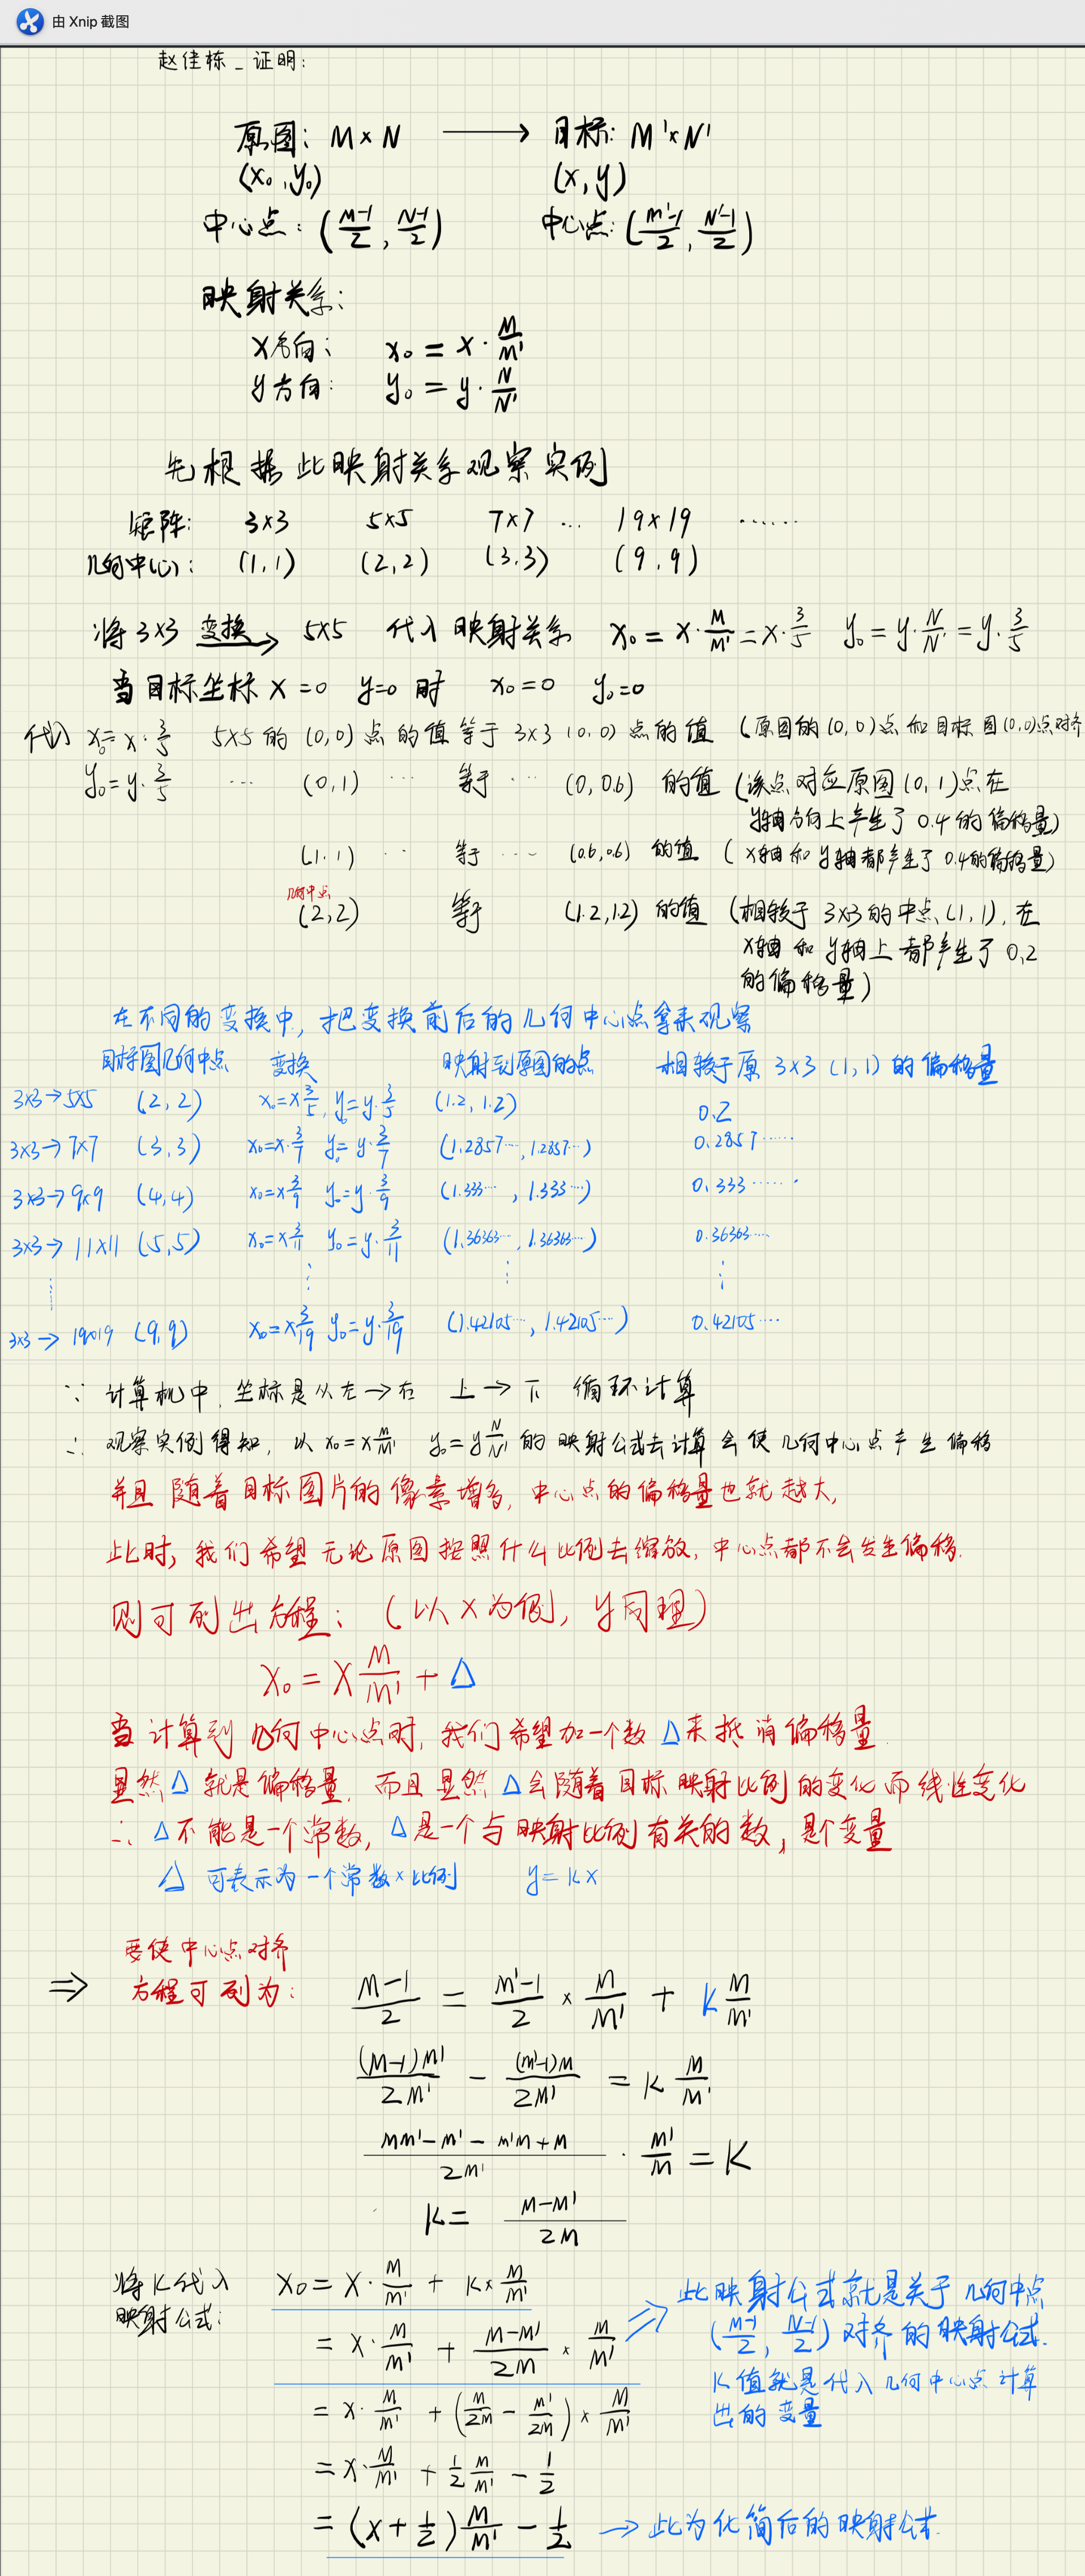 由 Xnip 截图
赵佳栋_证明:
原图: M×N → 目标: M'×N'
(x₀,y₀) (x,y)
中心点: (M-1/2, N-1/2) 中心点: (M'-1/2, N'-1/2)
映射关系:
X方向: x₀ = x·M/M'
y方向: y₀ = y·N/N'
先根据此映射关系观察实例
矩阵: 3×3 5×5 7×7 … 19×19 ……
几何中心: (1,1) (2,2) (3,3) (9,9)
将3×3 变换→ 5×5 代入映射关系 x₀ = x·M/M' = x·3/5 y₀ = y·N/N' = y·3/5
当目标坐标 x=0 y=0 时 x₀=0 y₀=0
代入 x₀=x·3/5 5×5的 (0,0) 点的值等于 3×3 (0,0) 点的值 (原图的(0,0)点和目标图(0,0)点对齐
y₀=y·3/5 … (0,1) … 等于 … (0,0.6) 的值 (该点对应原图(0,1)点在
y轴方向上产生了0.4的偏移量)
(1,1) … 等于 … (0.6,0.6) 的值 (x轴和y轴都产生了0.4的偏移量)
几何中点
(2,2) 等于 (1.2,1.2) 的值 (相较于3×3的中点(1,1),在
x轴和y轴上都产生了0.2
的偏移量)
在不同的变换中,把变换前后的几何中心点拿来观察
目标图几何中点 变换 映射到原图的点 相较于原3×3 (1,1)的偏移量
3×3→5×5 (2,2) x₀=x3/5, y₀=y·3/5 (1.2, 1.2) 0.2
3×3→7×7 (3,3) x₀=x·3/7 y₀=y·3/7 (1.2857…,1.2857…) 0.2857……
3×3→9×9 (4,4) x₀=x3/9 y₀=y·3/9 (1.333…, 1.333…) 0.333……
3×3→11×11 (5,5) x₀=x3/11 y₀=y·3/11 (1.36363…,1.36363…) 0.36363……
3×3→19×19 (9,9) x₀=x3/19 y₀=y·3/19 (1.42105…, 1.42105…) 0.42105……
∵ 计算机中,坐标是从左→右 上→下 循环计算
∴ 观察实例得知,以 x₀=xM/M' y₀=yN/N' 的映射公式去计算会使几何中心点产生偏移
并且随着目标图片的像素增多,中心点的偏移量也就越大,
此时,我们希望无论原图按照什么比例去缩放,中心点都不会发生偏移.
则可列出方程: (以X为例,y同理)
X₀ = X M/M' + Δ
当计算到几何中心点时,我们希望加一个数Δ来抵消偏移量.
显然Δ就是偏移量,而且显然Δ会随着目标映射比例的变化而线性变化
∴ Δ不能是一个常数,Δ是一个与映射比例有关的数,是个变量
Δ 可表示为一个常数×比例 y=kx
要使中心点对齐
⇒ 方程可列为: M-1/2 = M'-1/2 × M/M' + K M/M'
(M-1)M'/2M' - (M'-1)M/2M' = K M/M'
MM'-M'-M'M+M/2M' · M'/M = K
K = M-M'/2M
将K代入 X₀ = X·M/M' + K×M/M'
映射公式:
= X·M/M' + M-M'/2M × M/M' ⇒ 此映射公式就是关于几何中点
(M-1/2, N-1/2) 对齐的映射公式.
K值就是代入几何中心点计算
出的变量
= X·M/M' + (M/2M - M'/2M) × M/M'
= X·M/M' + 1/2 M/M' - 1/2
= (X+1/2)M/M' - 1/2 → 此为化简后的映射公式.